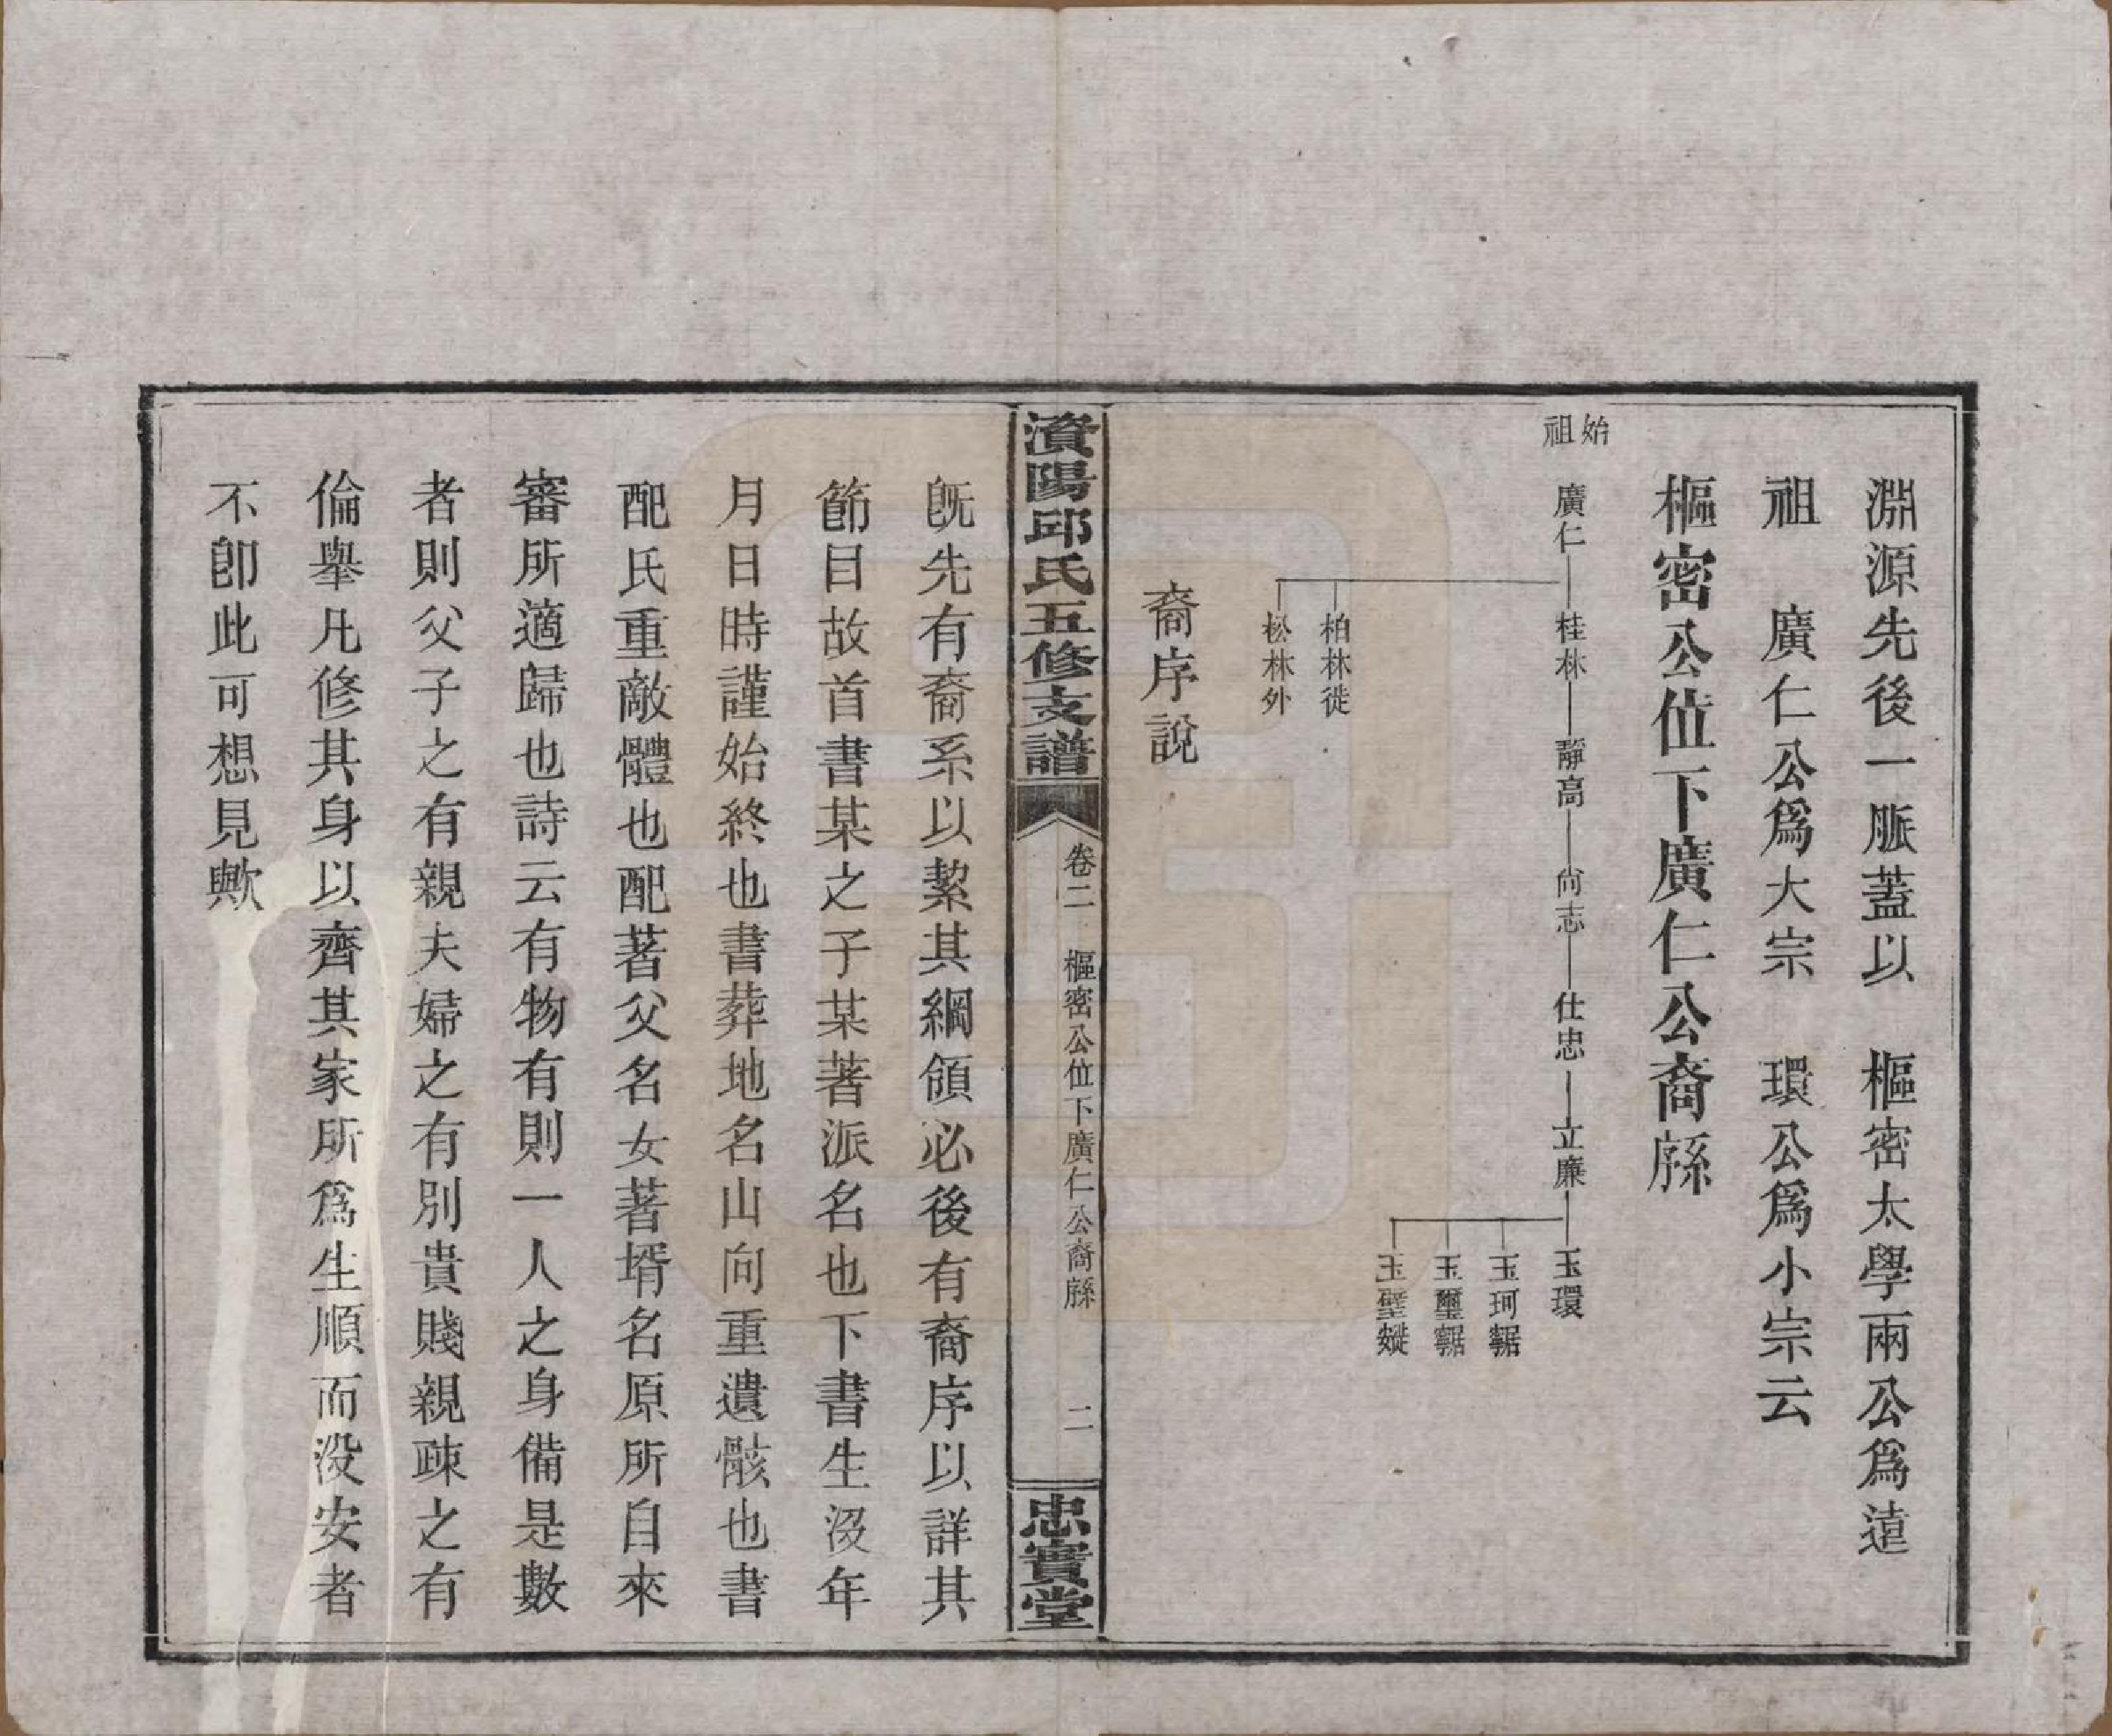 淵源先後一脈蓋以　樞密太學兩公爲遠
祖　廣仁公爲大宗　環公爲小宗云
樞密公位下廣仁公裔縣
始祖
廣仁
桂林
靜高
尙志
仕忠
立廉
玉環
玉珂
玉璽
玉璧
柏林徙
松林外
裔序說
濱陽邱氏五修支譜
卷二　樞密公位下廣仁公裔縣　二
忠實堂
旣先有裔系以絜其綱領必後有裔序以詳其
節目故首書某之子某著派名也下書生沒年
月日時謹始終也書葬地名山向重遺骸也書
配氏重敵體也配著父名女著壻名原所自來
審所適歸也詩云有物有則一人之身備是數
者則父子之有親夫婦之有別貴賤親疎之有
倫舉凡修其身以齊其家所爲生順而沒安者
不卽此可想見歟